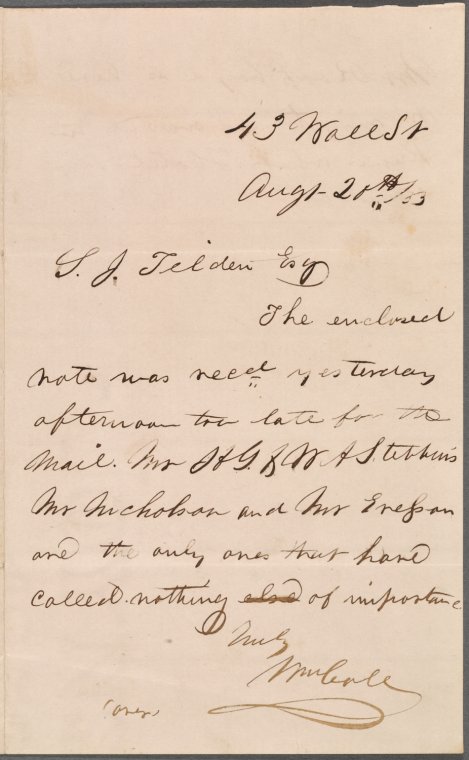 43 Wall St
Augt 20th/53
S. J. Tilden Esq
The enclosed
note was recd yesterday
afternoon too late for the
Mail. Mr H G & W A Stebbins
Mr Nicholson and Mr
are the only ones that have
called. nothing else of importance
Truly
Wm Cole
(over